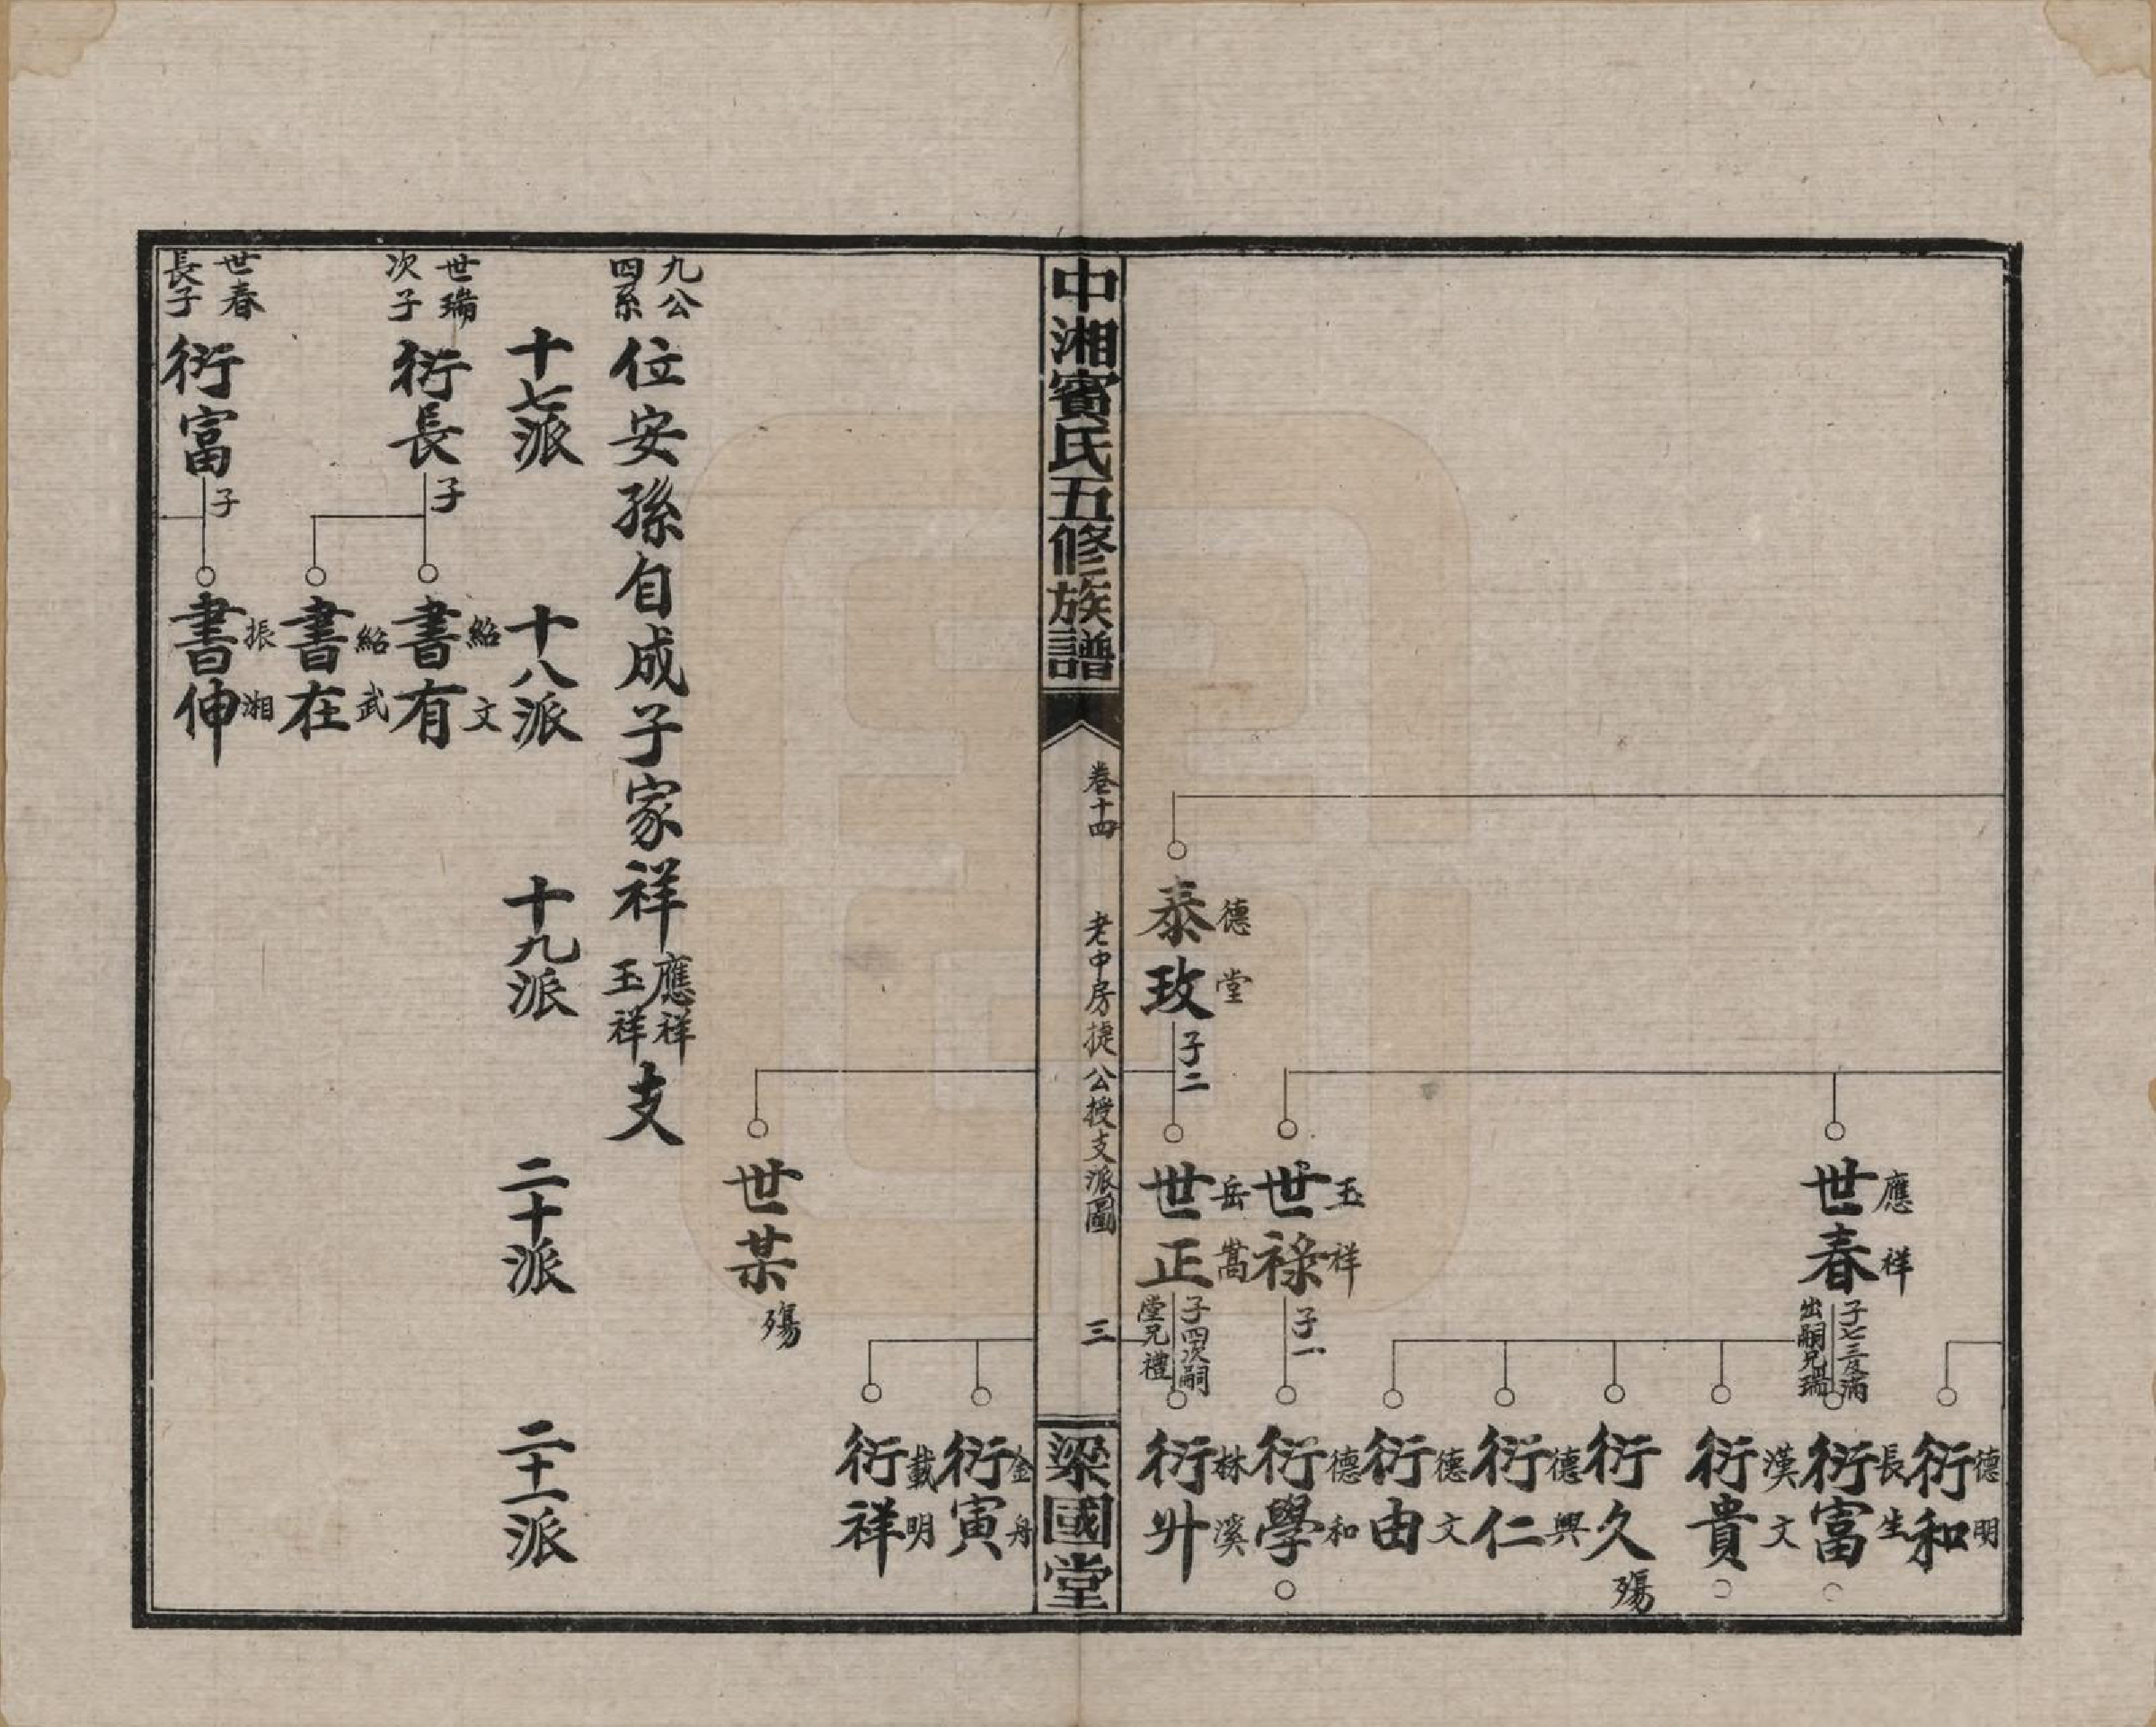 德明
衍和
應祥
世春
子七三及滿
出嗣兄世瑞
長生
衍富
漢文
衍貴
衍久
殤
德興
衍仁
德文
衍由
玉祥
世祿
子一
德和
衍學
德堂
泰玫
子二
岳嵩
世正
子四次嗣
堂兄禮
林溪
衍升
中湘賓氏五修族譜
卷十四
老中房捷公授支派圖
三
梁國堂
金舟
衍寅
載明
衍祥
世某
殤
九公
四系
位安孫自成子家祥
應祥
玉祥
支
十七派
十八派
十九派
二十派
二十一派
世瑞
次子
衍長
子
紹文
書有
紹武
書在
世春
長子
衍富
子
振湘
書伸